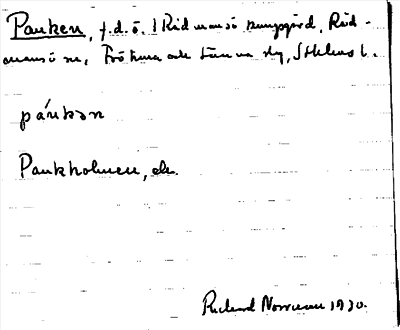 Pauken, f.d. ö. i Rådmansö kungsgård, Råd-
mansö sn, Frötuna och Länna slg, Sthlms l.
páukən
Paukholmen, ek.
Rickard Norrman 1930.